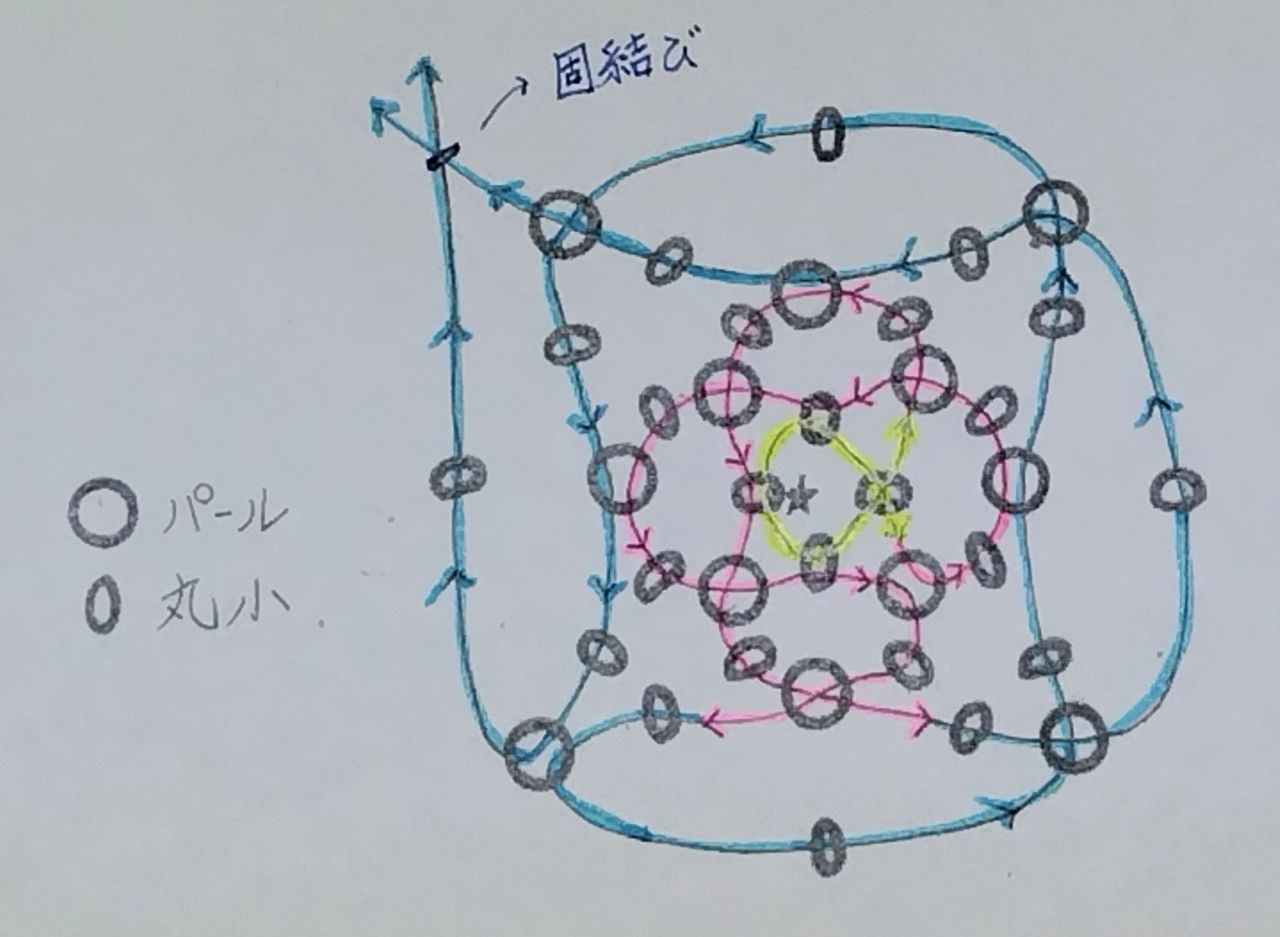 固結び
パール
丸小